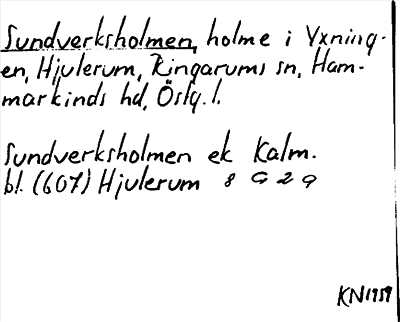 Sundverksholmen, holme i Yxning-
en, Hjulerum, Ringarums sn, Ham-
markinds hd, Östg. l.
Sundverksholmen ek Kalm.
bl. (607) Hjulerum 8 G 2 9
KN 1959